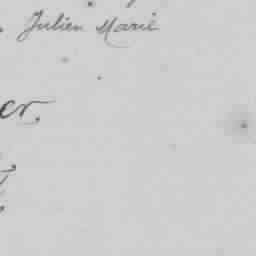 Julien Marie
er